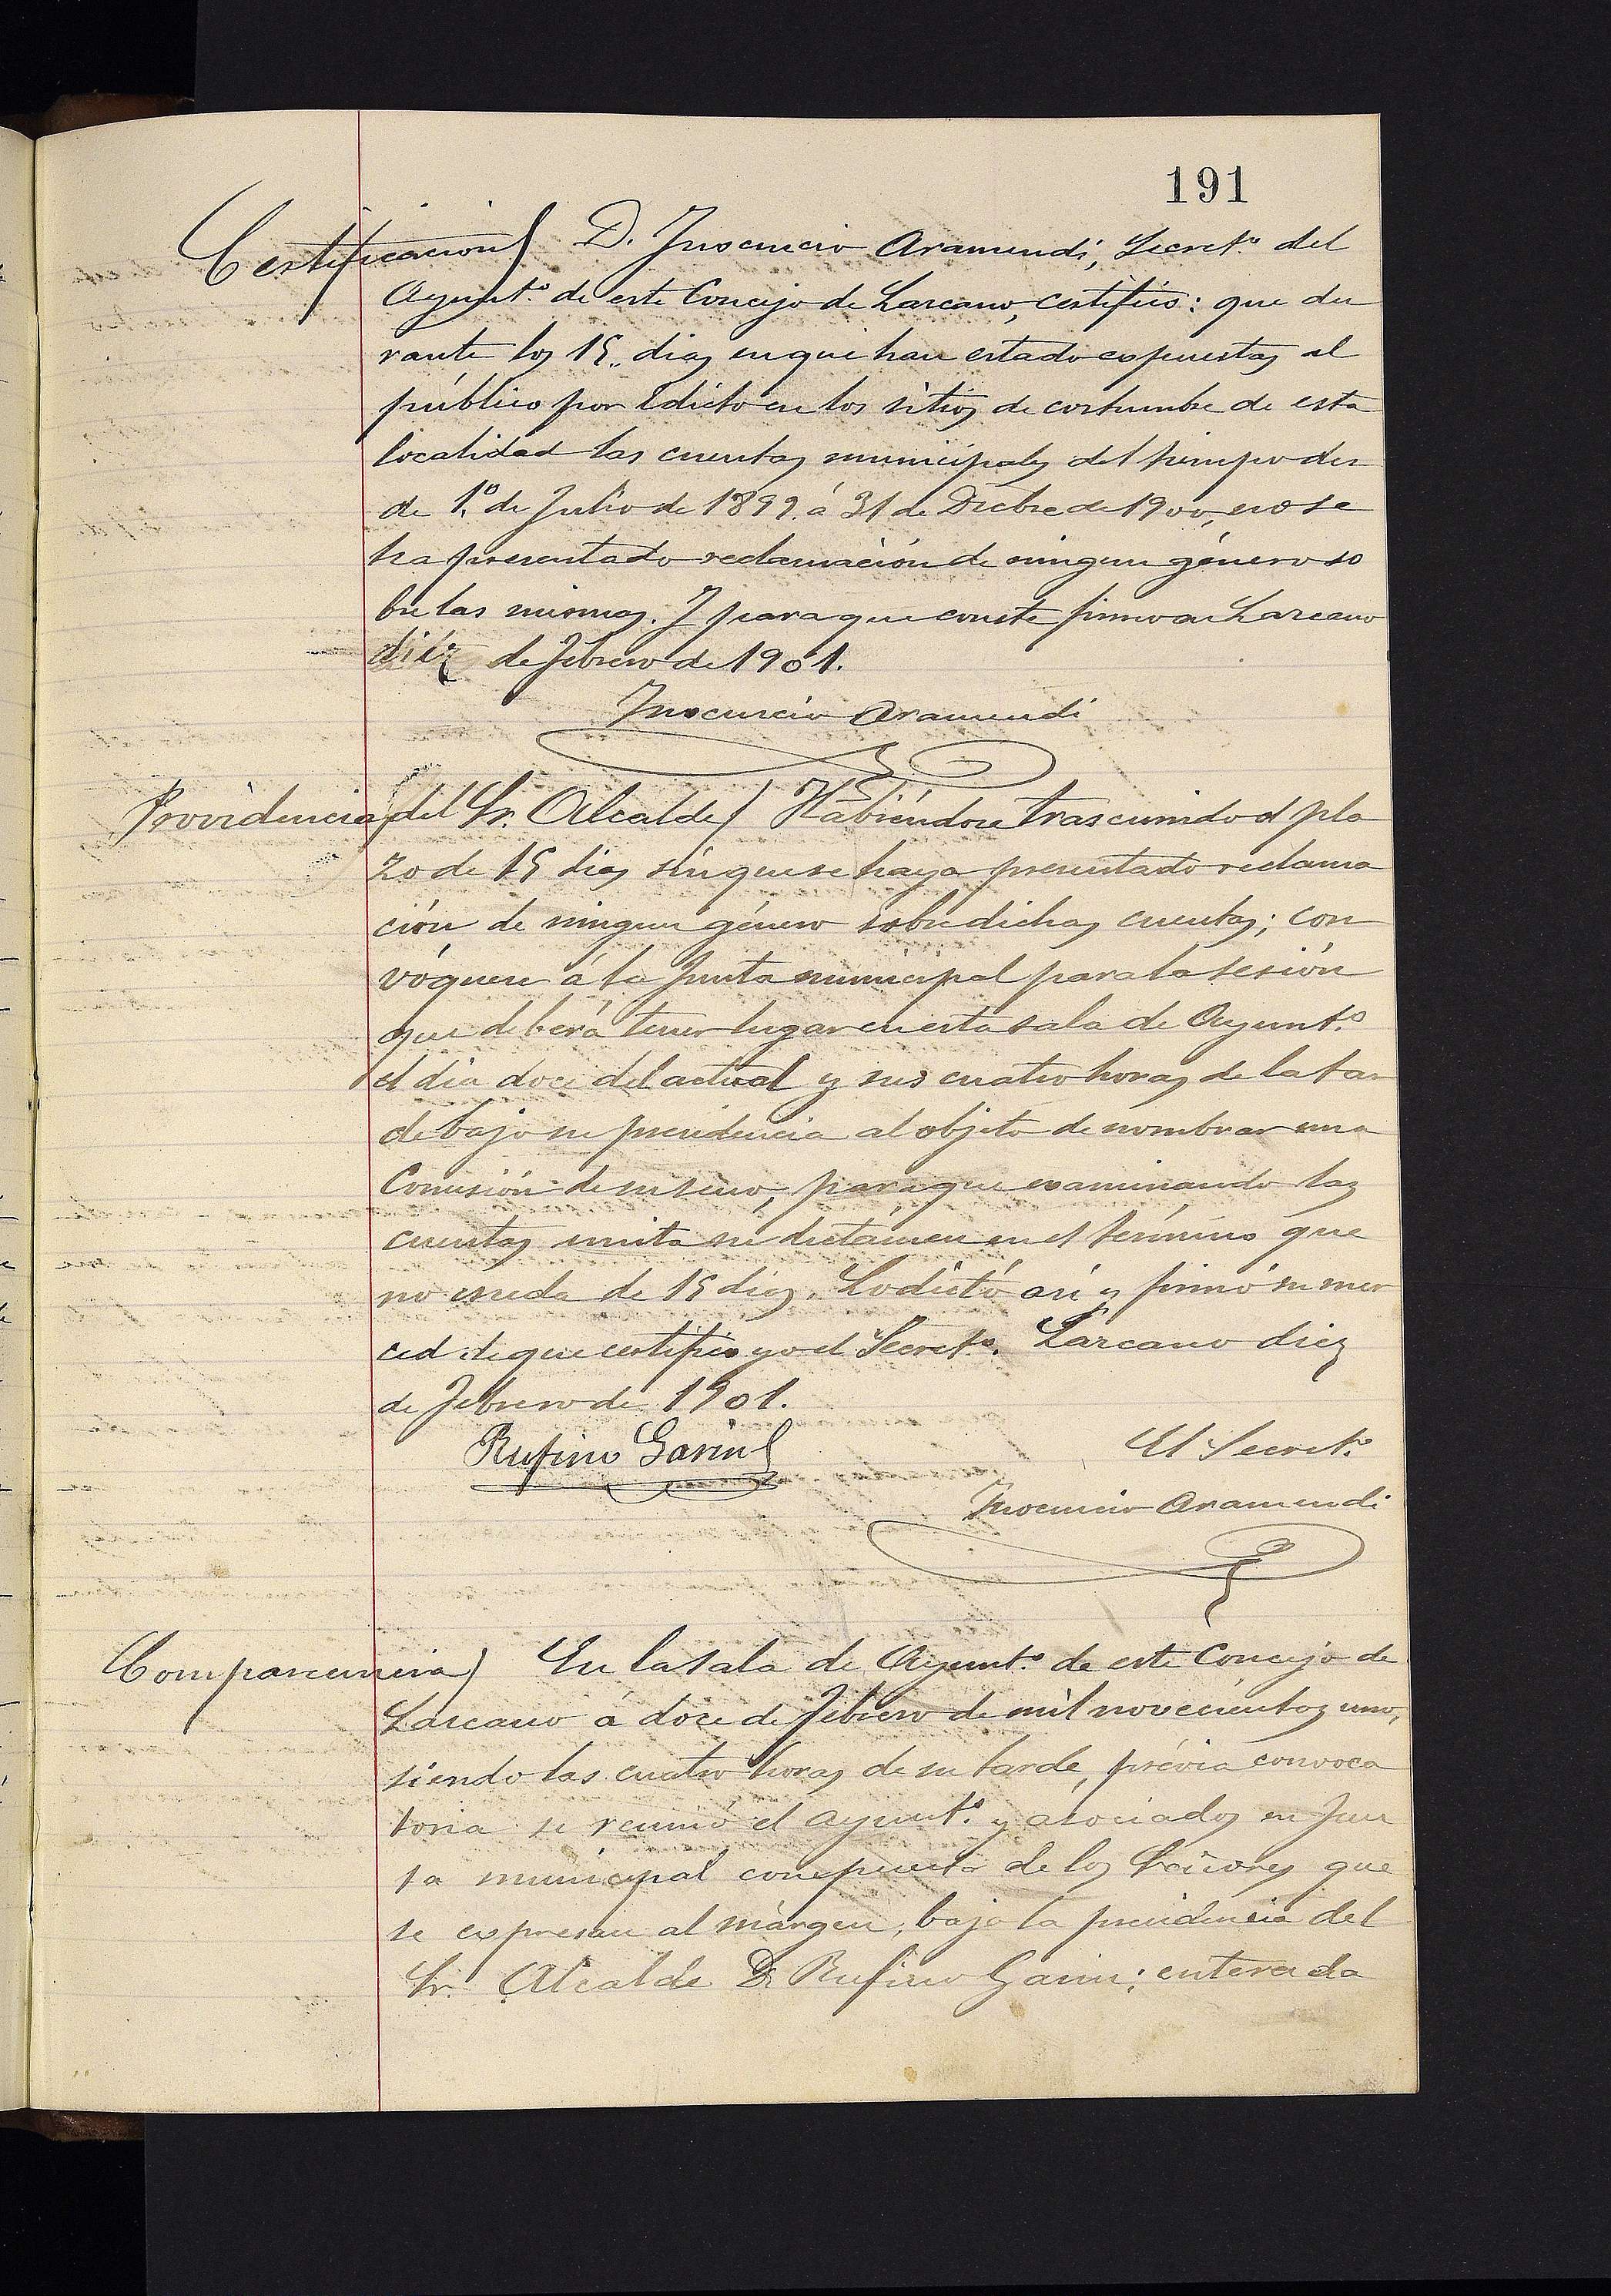 191
Certificacion) D. Inocencio Aramendi, Secret.º del
Ayunt.º de este Concejo de Lazcano, certifico: que du
rante los 15,, dias en que han estado espuestas al
público por Edicto en los sitios de costumbre de esta
localidad las cuentas municipales del tiempo des
de 1.º de Julio de 1899. á 31 de Dicbre de 1900, no se
ha presentado reclamación de ningun género so
bre las mismas. Y para que conste firmo en Lazcano
diéz de Febrero de 1901.
Inocencio Aramendi
Providencia del Sr. Alcalde) Habiéndose trascurrido el pla
zo de 15 dias sin que se haya presentado reclama
ción de ningun género sobre dichas cuentas; con
vóquese á la Junta municipal para la sesión
que deberá tener lugar en esta sala de Ayunt.º
el dia doce del actual y sus cuatro horas de la tar
de bajo su presidencia al objeto de nombrar una
Comisión de su seno, para que examinando las
cuentas emita su dictámen en el término que
no esceda de 15 dias. Lo dictó asi y firmó su mer
ced de que certifico yo el Secret.º. Lazcano diez
de Febrero de 1901.
Rufino Garin
El Secret.º
Inocencio Aramendi
Comparecencia) En la Sala de Ayunt.º de este Concejo de
Lazcano á doce de Febrero de mil novecientos uno,
siendo las cuatro horas de su tarde, prévia convoca
toria se reunió el Ayunt.º y asociados en Jun
ta municipal compuesta de los Señores que
se espresan al márgen, bajo la presidencia del
Sr. Alcalde D. Rufino Garin; enterada